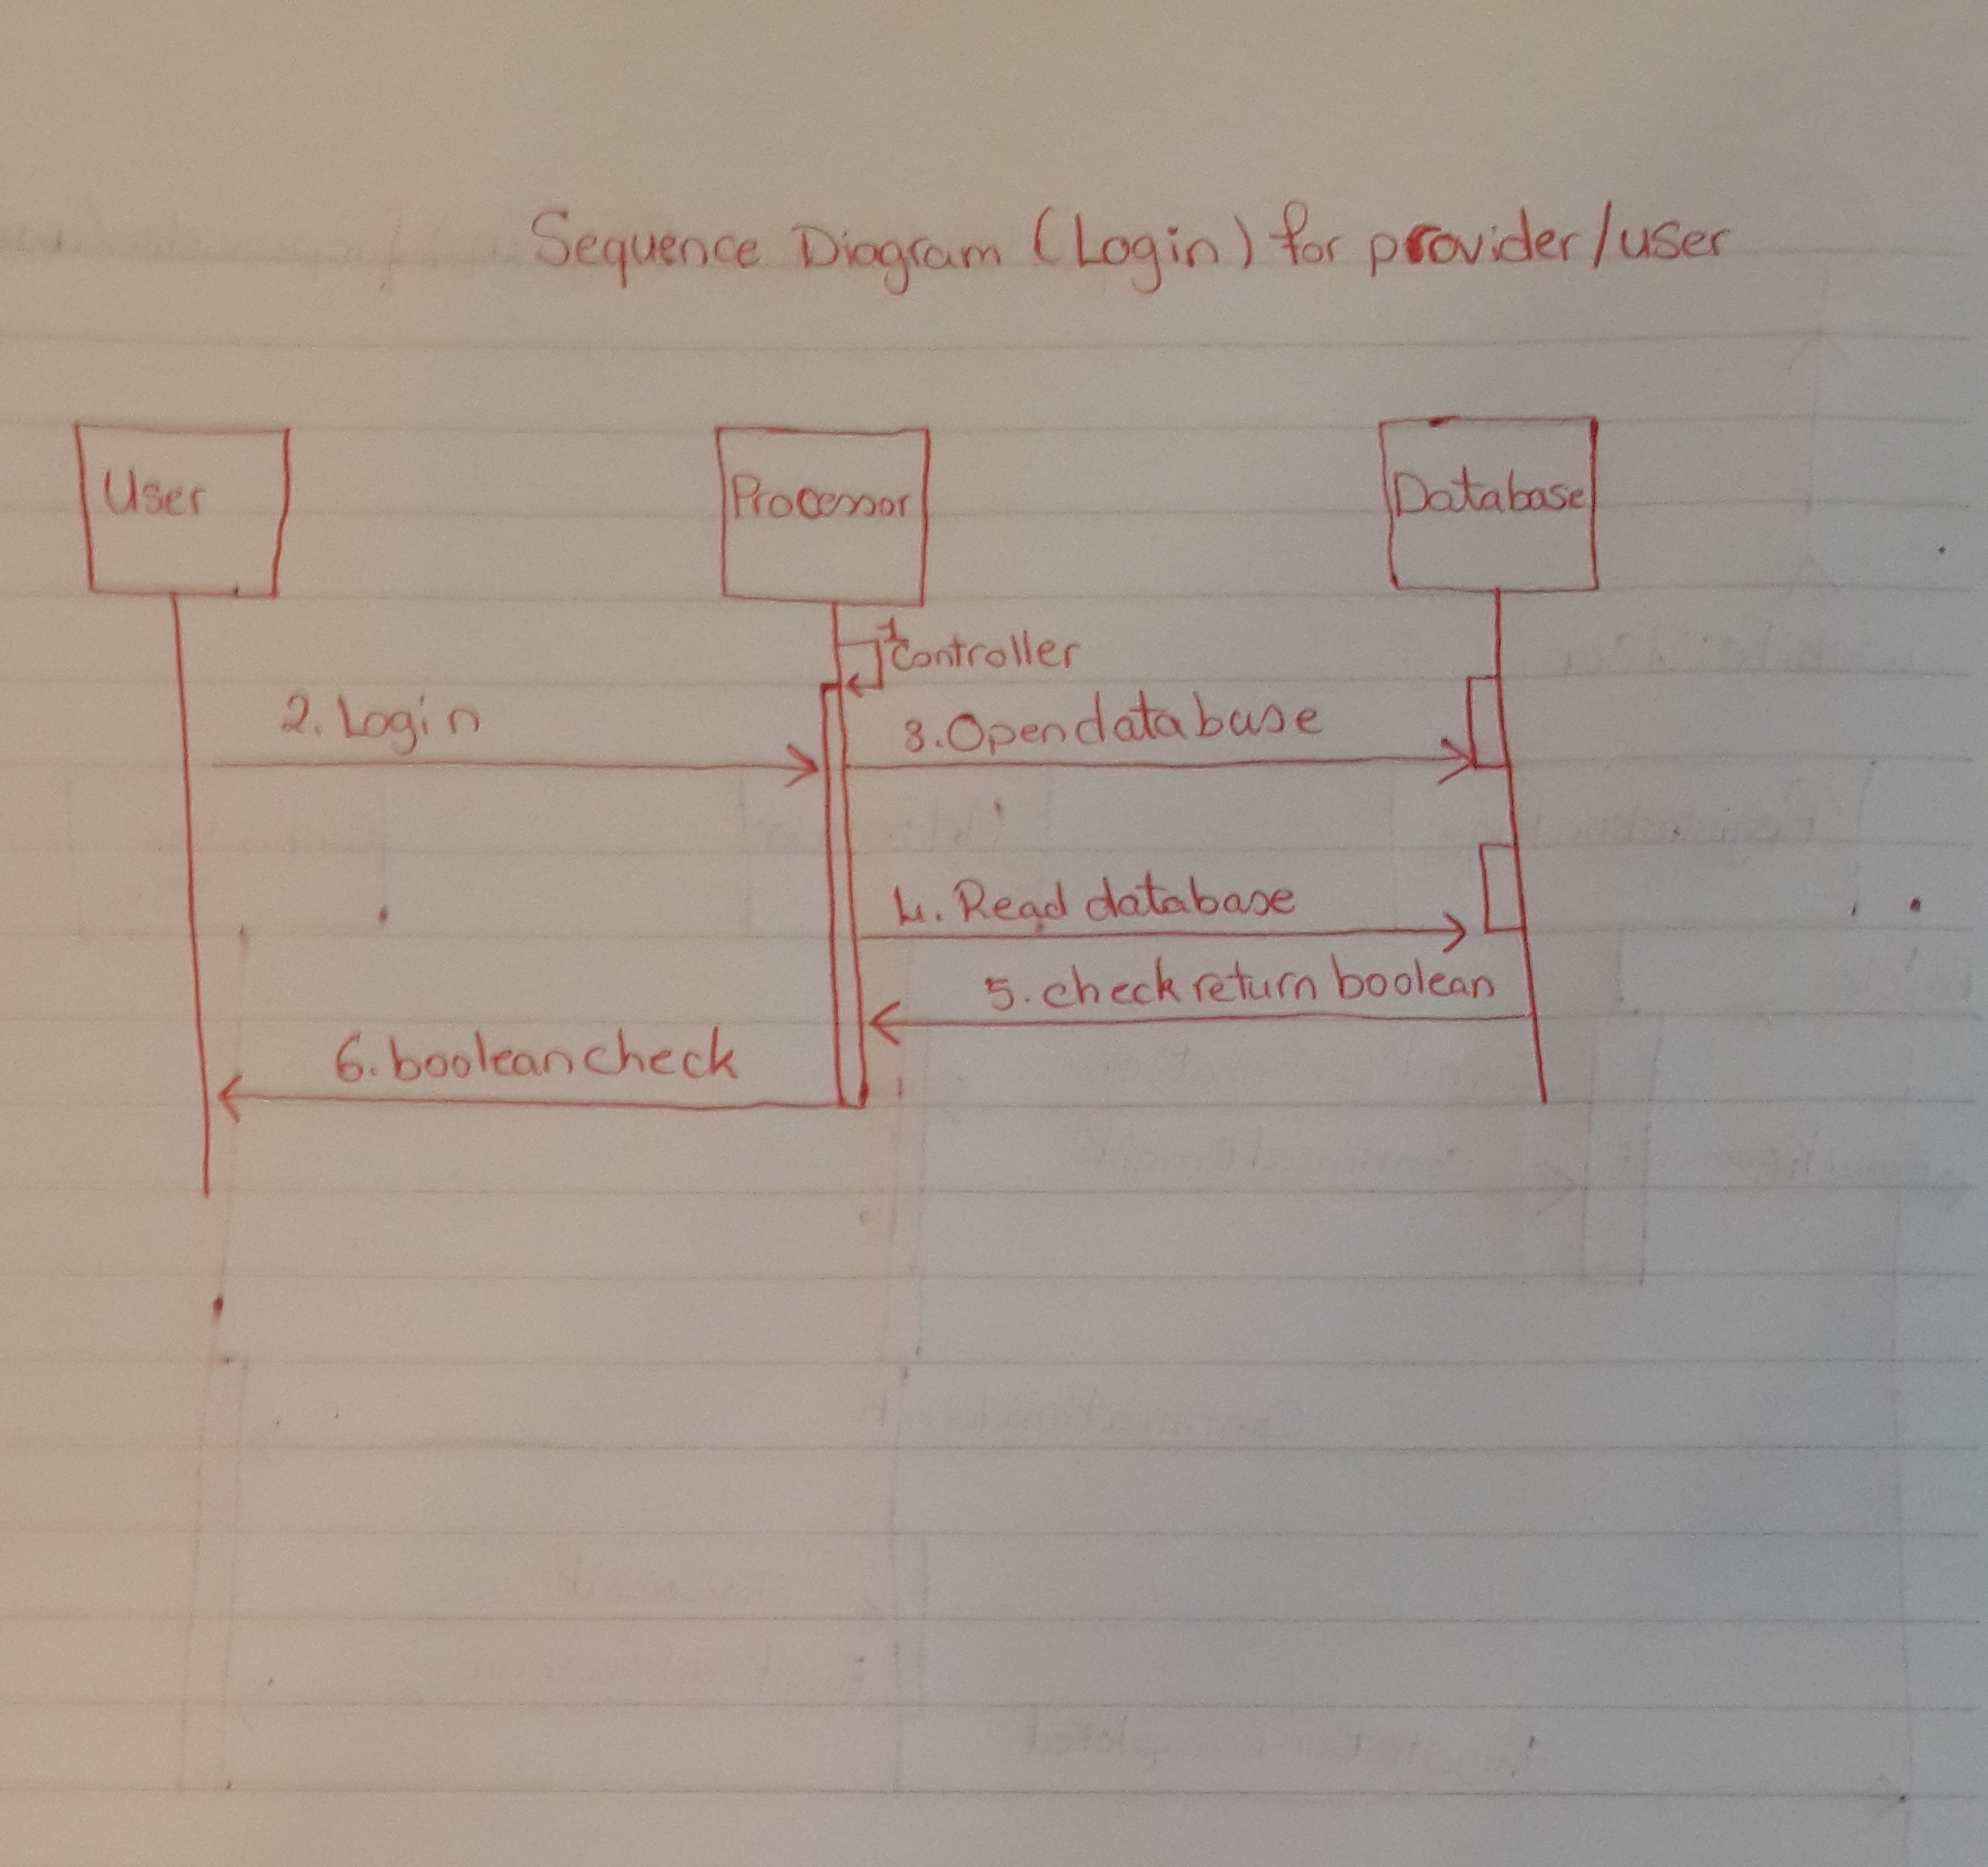 Sequence Diagram (Login) for provider/user
User
Processor
Database
1
Controller
2. Login
3. Open database
4. Read database
5. check return boolean
6. boolean check